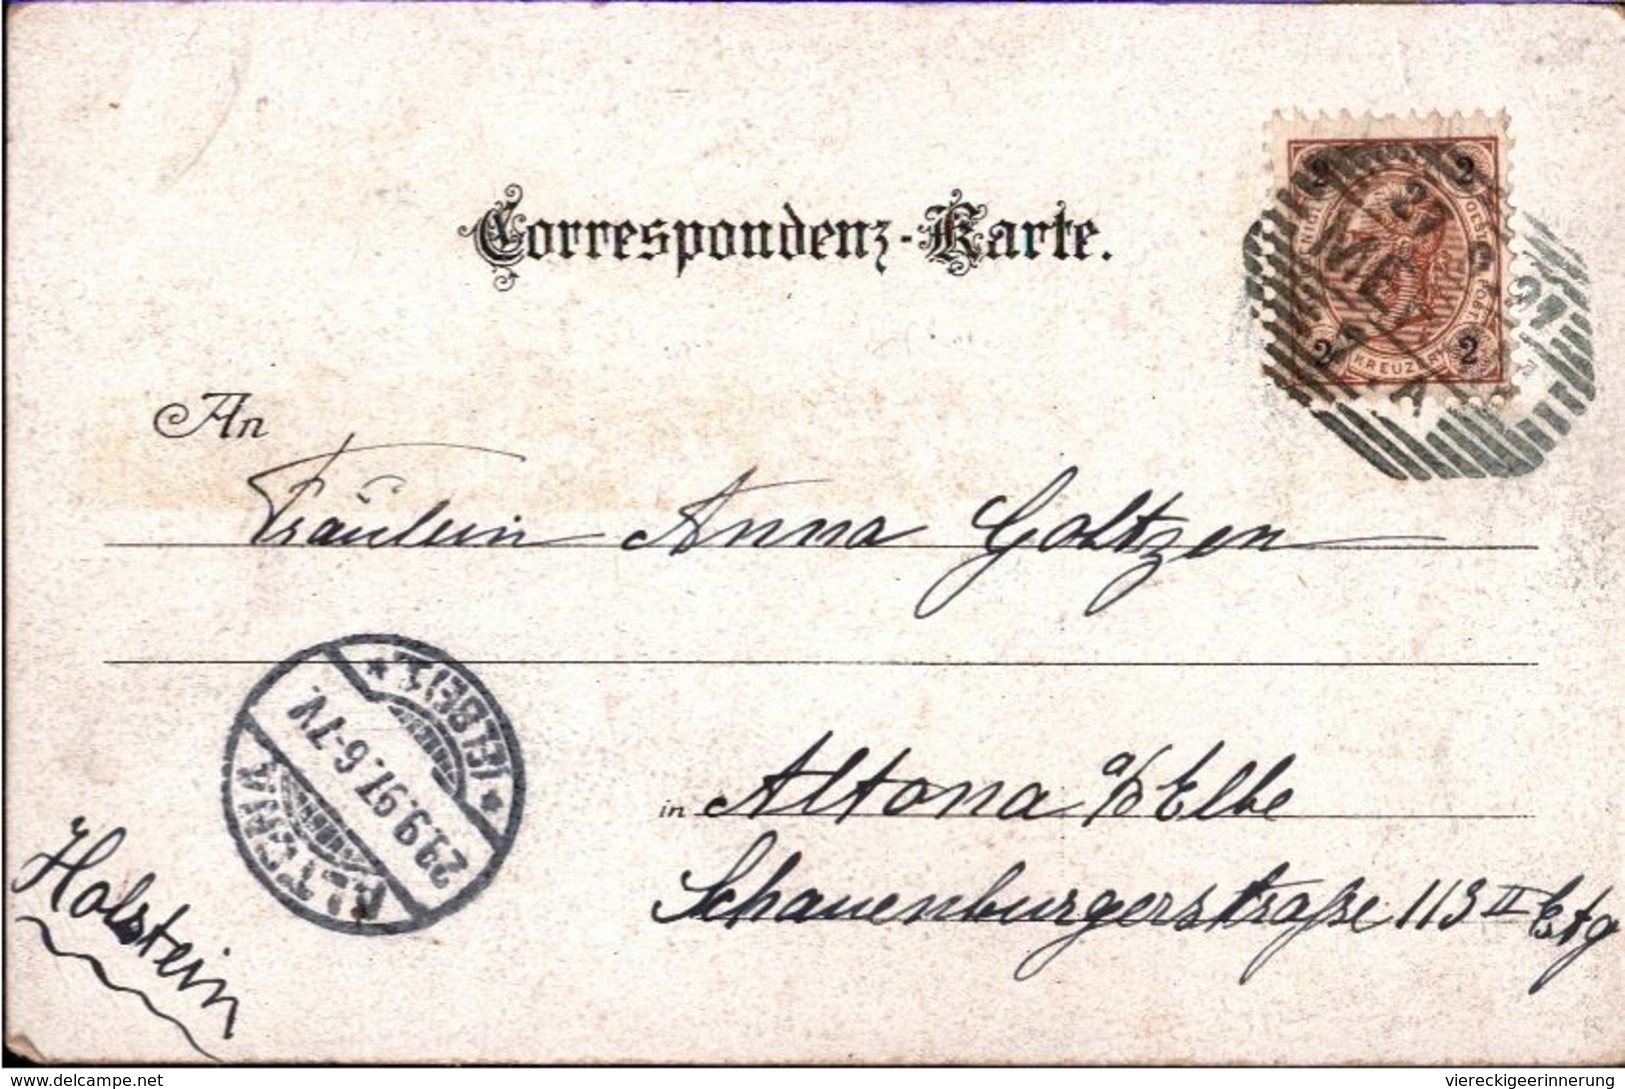 Correspondenz-Karte.
2 2
2 KREUZER 2
An
Fräulein Anna Goltzen
ALTONA (ELBE)
29.9.97. 6-7V.
in Altona a/d Elbe
Schauenburgerstraße 113 II Estg
Holstein
delcampe.net
viereckigeerinnerung